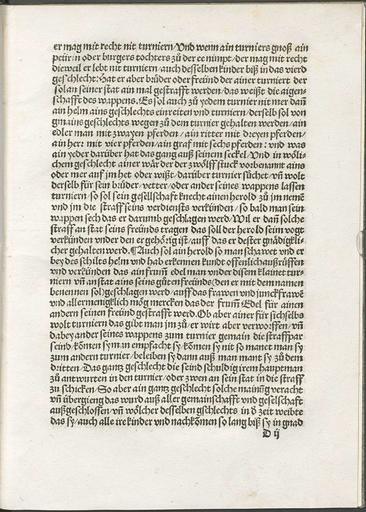 er mag mit recht nit turniern/Vnd wenn ain turniers gnoß ain
peürin oder burgers tochters zů der ee nimpt/der mag mit recht
dieweil er lebt nit turniern/auch desselben kinder biß in das vierd
geschlecht: Hat er aber brüder oder freünd der ainer turniert der
sol an seiner stat ain mal gestrafft werden/das weißt die aigen-
schafft des wappens. Es sol auch zů yedem turnier nit mer dañ
ain helm ains geschlechts einreiten vnd turniern/derselb sol von
gmains geschlechts wegen zů dem turner gehalten werden/ain
edler man mit zwayen pferden/ain ritter mit dreyen pferden/
ain herr mit vier pferden/ain graf mit sechs pferden: vnd was
ain yeder darüber hat das gang auß seinem seckel/Vnd in wöli-
chem geschlecht ainer wär der der zwölff stuck vorbenannt ains
oder mer auf jm het oder wißt/darüber turnier sůchet/vñ wolt
derselb für sein brüder/vetter/oder ander seines wappens lassen
turniern/so sol sein gesellschafft knecht ainen herold zů jm nemē
vnd jm die straff seins verdiensts verkünden/so bald man sein
wappen sech das er darumb geschlagen werd/Wil er dañ solche
straff an stat seins freünds tragen das soll der herold seim vogt
verkünden vnder den er gehörig ist/auff das er dester gnädigkli-
cher gehalten werd. ¶Auch sol ain herold so man schawet vnd er
bey des schilts helm vnd hab erkennen kunde offenlich außrůffen
vnd verkünden das ain frum̃ edel man vnder disem klainet tur-
niern vñ an stat ains seins gůten freünds (den er mit dem namen
benennen sol) geschlagen werd/auff das frawen vnd junckfrawē
vnd allermenigklich mög mercken das der frum̃ Edel für ainen
andern seinen freünd gestrafft werd. Ob aber ainer für sich selbs
wolt turniern das gibt man jm zů/er wirt aber verworffen/vñ
dabey ander seines wappens zum turnier gemain die straffpar
seind/kömen sy/man empfacht sy/kömen sy nit so manet man sy
zum andern turnier/beleiben sy dann auß man mant sy zů dem
dritten/Das gantz geschlecht die seind schuldig irem hauptman
zů antwurten in den turnier/oder zwen an sein stat in die straff
zů schicken/So aber ain gantz geschlecht solche mainũg veracht
vñ übergieng das wurd auß aller gemainschafft vnd gesellschaft
außgeschlossen/vñ wölcher desselben gschlechts in d̓ zeit weibte
das sy/auch alle ire kinder vnd nachkömen so lang biß sy in gnad
D ij